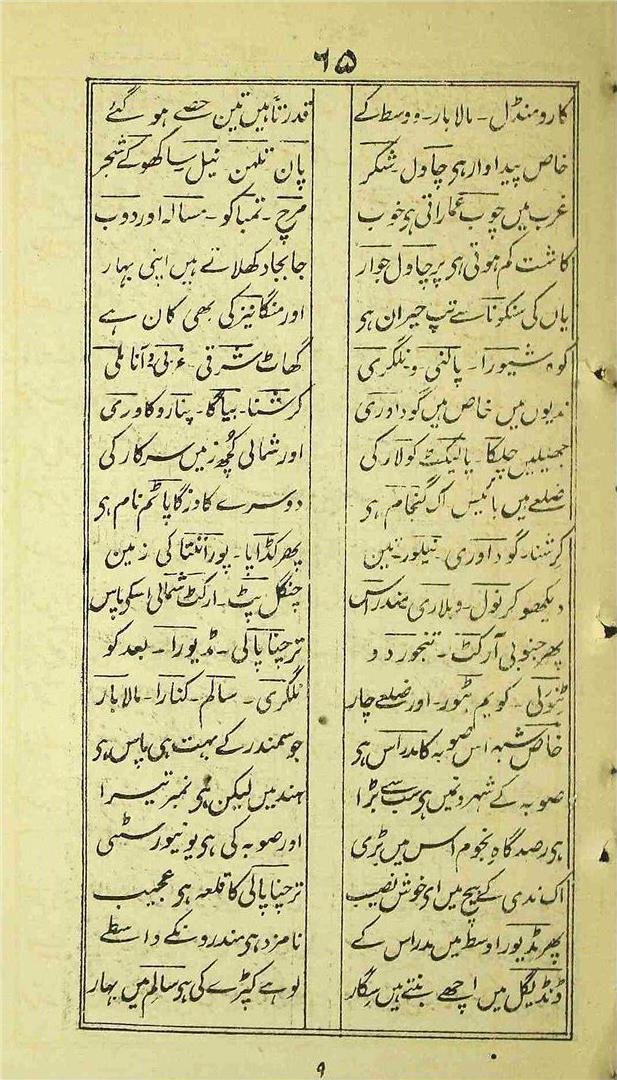 ٦٥
کارومنڈل - مالابار - ووسط کے
قدرتاً ہیں تین حصے ہو گئے
خاص پیداوار ہی چاول - شکر
پان تلہن نیل ساکھو کے شجر
غرب میں چوب عماراتی ہی خوب
مرچ - تمباکو - مسالہ اور دوب
کاشت کم ہوتی ہی پر چاول جوار
جابجا دکھلاتے ہیں اپنی بہار
یاں کی سنکونا سے تپ حیران ہی
اور منگانیز کی بھی کان ہے
کوہ شیورا - پالنی و نلگری
گھاٹ شرقی - غربی و آناملی
ندیوں میں خاص میں گوداوری
کرشنا - بیاگا - پنارو کاوری
جھیلیں چلکا - پالیکٹ کولار کی
اور شمالی کچھ زمیں سرکار کی
ضلعے میں بائیس اک گنجام ہی
دوسرے کا وزگاپاٹم نام ہی
کرشنا - گوداوری - نیلور - تین
پھر کڈاپا - پورانتتا کی زمین
دیکھو کرنول - وبلاری مندراس
چنگل پٹ - ارکٹ شمالی اسکی پاس
پھر جنوبی آرکٹ - تنجور دو
ترچناپالی - مڈیورا - بعد کو
ٹنولی - کویم بٹور - اور ضلعے چار
نلگری - سالم - کنارا - مالابار
خاص شہر اس صوبہ کا مدراس ہی
جو سمندر کے بہت ہی پاس ہی
صوبہ کے شہرونمیں ہی سب سے بڑا
ہند میں لیکن ہی نمبر تیسرا
ہی رصدگاہ نجوم اس میں بڑی
اور صوبہ کی ہی یونیورسٹی
اک ندی کے بیچ میں ای خوش نصیب
ترچناپالی کا قلعہ ہی عجیب
پھر مڈیورا وسط میں مدراس کے
نامزد ہی مندرونکے واسطے
ڈنڈیگل میں اچھے بنتے ہیں سگار
لوہے کپڑے کی ہی سالم میں بہار
۹